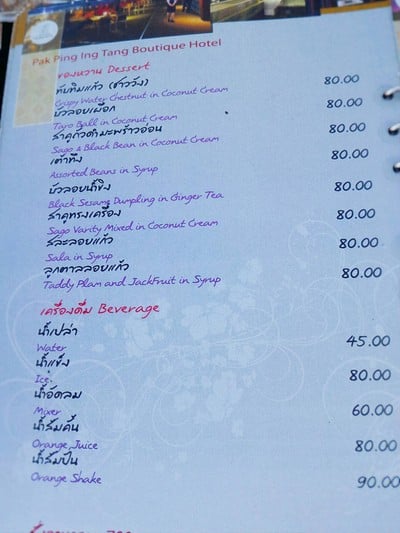 Pak Ping Ing Tang Boutique Hotel
ของหวาน Dessert
ทับทิมแก้ว (ชาววัง) 80.00
Crispy Water Chestnut in Coconut Cream
บัวลอยเผือก 80.00
Taro Ball in Coconut Cream
สาคูถั่วดำมะพร้าวอ่อน 80.00
Sago & Black Bean in Coconut Cream
เต้าทึง 80.00
Assorted Beans in Syrup
บัวลอยน้ำขิง 80.00
Black Sesame Dumpling in Ginger Tea
สาคูทรงเครื่อง 80.00
Sago Varity Mixed in Coconut Cream
สละลอยแก้ว 80.00
Sala in Syrup
ลูกตาลลอยแก้ว 80.00
Taddy Plam and JackFruit in Syrup
เครื่องดื่ม Beverage
น้ำเปล่า 45.00
Water
น้ำแข็ง 80.00
Ice
น้ำอัดลม 60.00
Mixer
น้ำส้มคั้น 80.00
Orange Juice
น้ำส้มปั่น 90.00
Orange Shake